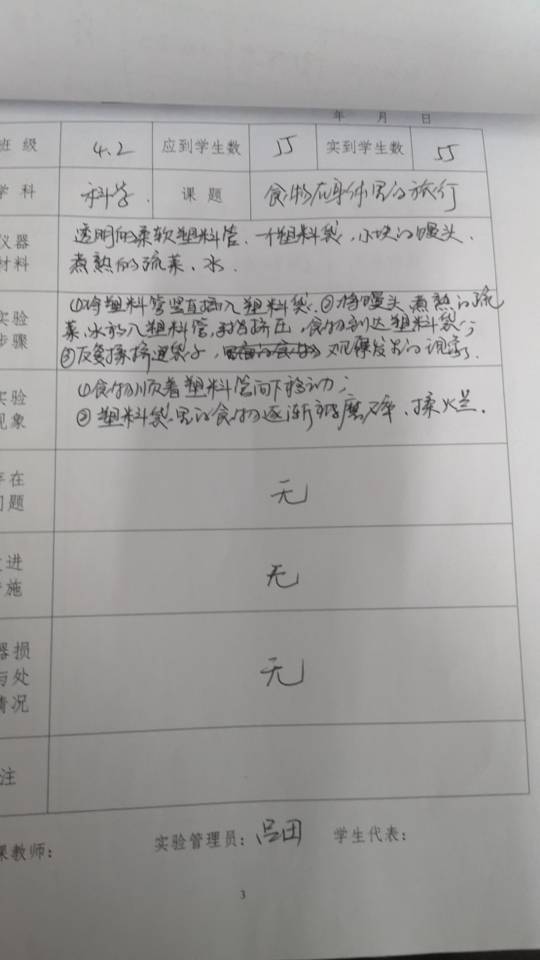 年 月 日
班 级 4.2 应到学生数 55 实到学生数 55
学 科 科学. 课 题 食物在身体里的旅行
仪器 透明的柔软塑料管、一个塑料袋、小块的馒头、
材料 煮熟的蔬菜、水.
实验 ①将塑料管竖直插入塑料袋.②将馒头、煮熟的蔬
步骤 菜、水放入塑料管,挤压,食物到达塑料袋;
③反复揉挤这袋子,观察发生的现象.
实验 ①食物顺着塑料管向下移动;
现象 ②塑料袋里的食物逐渐被磨碎、揉烂.
存在
问题 无
改进
措施 无
器损
与处 无
情况
注
课教师: 实验管理员:吕田 学生代表:
3